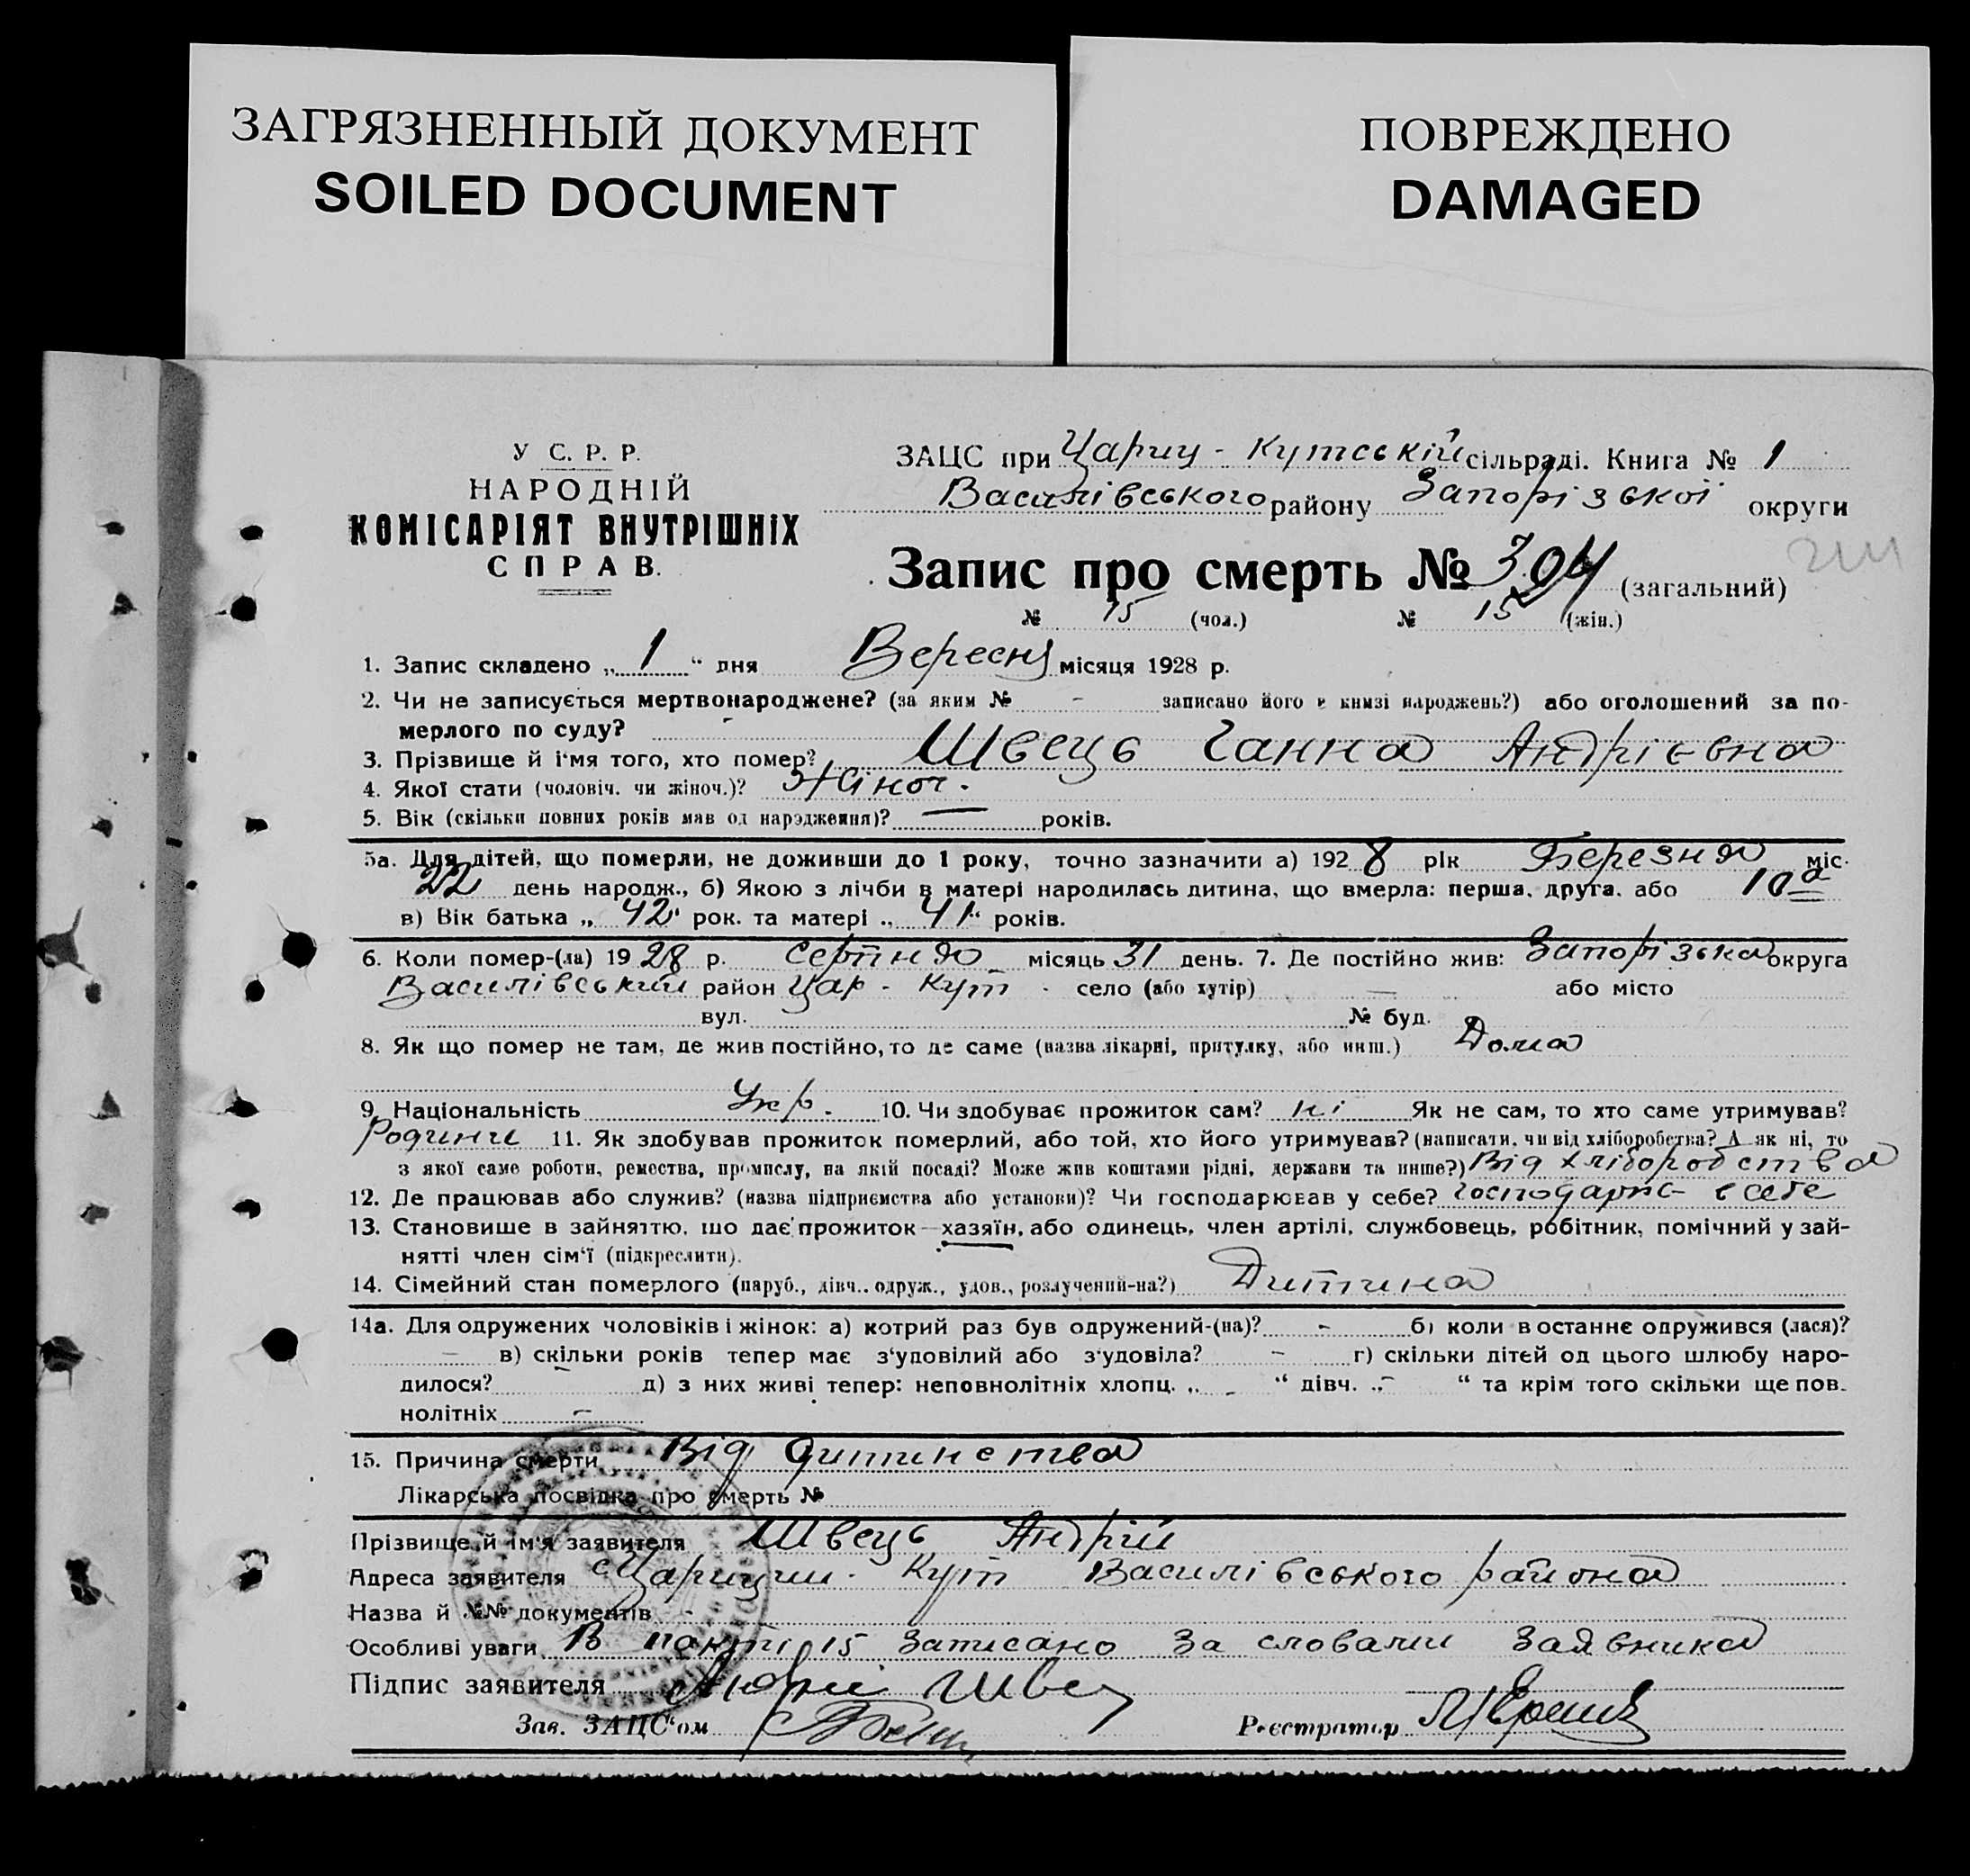 ЗАГРЯЗНЕННЫЙ ДОКУМЕНТ
SOILED DOCUMENT
ПОВРЕЖДЕНО
DAMAGED
У С. Р. Р.
НАРОДНІЙ
КОМІСАРІЯТ ВНУТРІШНІХ
СПРАВ.
ЗАЦС при Цариц-Кутській сільраді. Книга № 1
Василівського району Запорізької округи
Запис про смерть № 304 (загальний)
№ 15 (чол.) № 15 (жін.)
1. Запис складено „ 1 “ дня Вересня місяця 1928 р.
2. Чи не записується мертвонароджене? (за яким № - записано його в книзі народжень?) або оголошений за по-
мерлого по суду? -
3. Прізвище й ім'я того, хто помер? Швець Ганна Андрієвна
4. Якої стати (чоловіч. чи жіноч.)? Жіноч.
5. Вік (скільки повних років мав од народження)? — років.
5а. Для дітей, що померли, не доживши до 1 року, точно зазначити а) 1928 рік Березня міс.
22 день народж., б) Якою з лічби в матері народилась дитина, що вмерла: перша, друга, або 10а
в) Вік батька „ 42 “ рок. та матері „ 41 “ років.
6. Коли помер-(ла) 1928 р. Серпня місяць 31 день. 7. Де постійно жив: Запорізька округа
Василівський район Цар-Кут село (або хутір) — або місто
вул. № буд.
8. Як що помер не там, де жив постійно, то де саме (назва лікарні, притулку, або инш.) Дома
9. Національність Укр. 10. Чи здобуває прожиток сам? ні Як не сам, то хто саме утримував?
Родичи 11. Як здобував прожиток померлий, або той, хто його утримував? (написати, чи від хліборобства? А як ні, то
з якої саме роботи, ремества, промислу, на якій посаді? Може жив коштами рідні, держави та инше?) Від хліборобства
12. Де працював або служив? (назва підприємства або установи)? Чи господарював у себе? господарює в себе
13. Становище в зайняттю, що дає прожиток—хазяїн, або одинець, член артілі, службовець, робітник, помічний у зай-
нятті член сім'ї (підкреслити).
14. Сімейний стан померлого (паруб., дівч., одруж., удов., розлучений-на?) Дитина
14а. Для одружених чоловіків і жінок: а) котрий раз був одружений-(на)? - б) коли в останнє одружився (лася)?
- в) скільки років тепер має з'удовілий або з'удовіла? - г) скільки дітей од цього шлюбу наро-
дилося? - д) з них живі тепер: неповнолітніх хлопц. „ - “ дівч. „ - “ та крім того скільки ще пов.
нолітніх -
15. Причина смерти Від дитинства
Лікарська посвідка про смерть №
Прізвище й ім'я заявителя Швець Андрій
Адреса заявителя с Царицин-Кут Василівського района
Назва й №№ документів -
Особливі уваги В пакті 15 записано за словами заявника
Підпис заявителя Андрій Швец
Зав. ЗАЦС'ом
Реєстратор